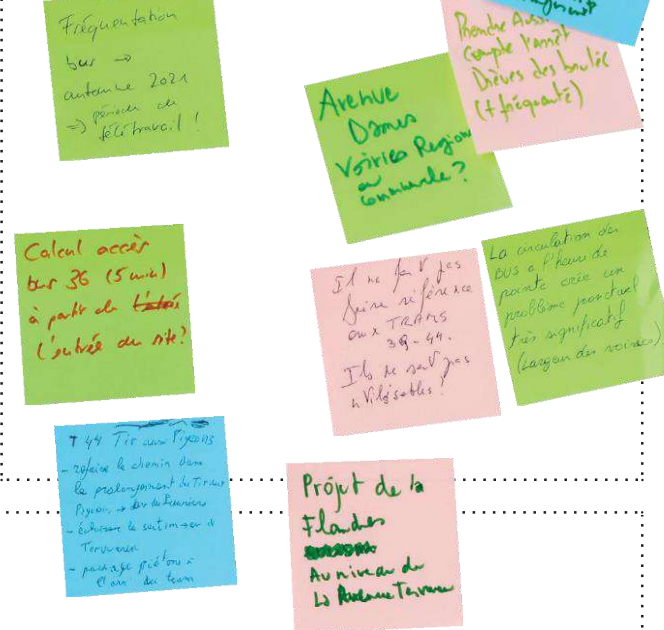 Fréquentation
bus →
automne 2021
=> période de
télétravail !
Prendre Aussi
compte l'arrêt
Drèves des
(+ fréquenté)
Avenue
Dames
Voiries Region
ou
communale ?
Calcul accès
bus 36 (5 min)
à partir de
l'entrée du site ?
Il ne faut pas
faire référence
aux TRAMS
39-44.
Ils ne sont pas
utilisables !
La circulation des
BUS à l'heure de
pointe crée un
problème ponctuel
très significatif
(Largeur des voiries)
T 44 Tir aux Pigeons
- refaire le chemin dans
le prolongement du Tir aux
Pigeons →
- éclairer la section
Tervueren
- passage piétons à
du tram
Projet de la
Flandres
Au niveau de
L'Avenue Tervuren